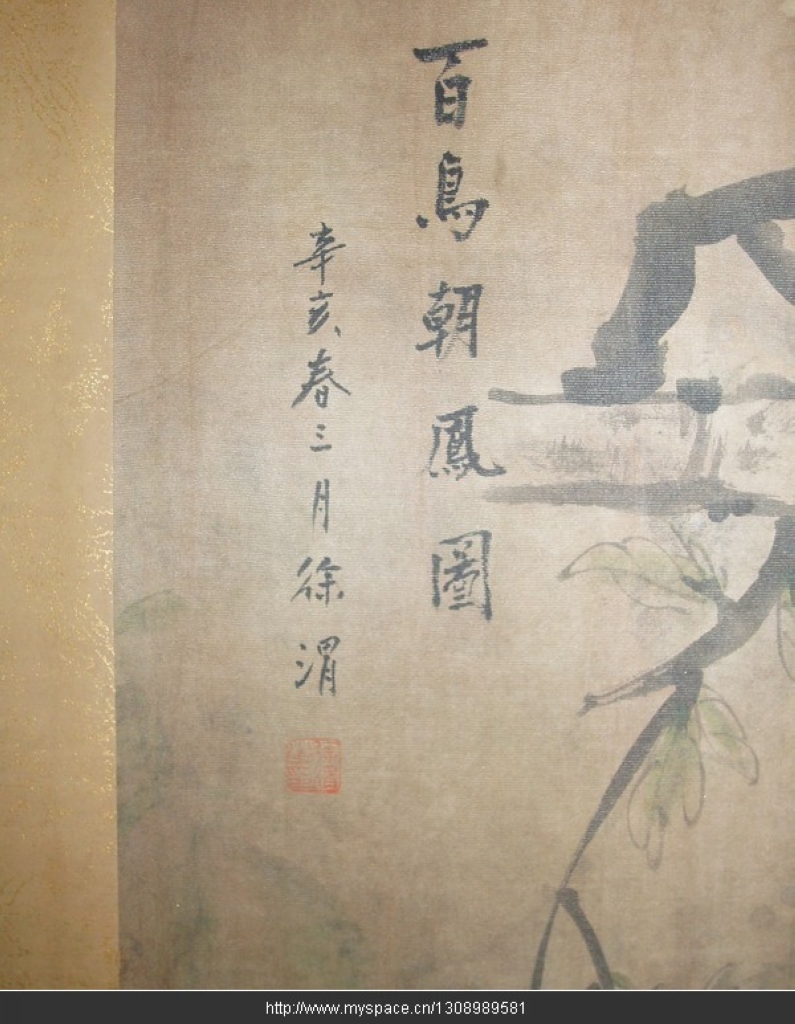 百鳥朝鳳圖
辛亥春三月徐渭
http://www.myspace.cn/1308989581